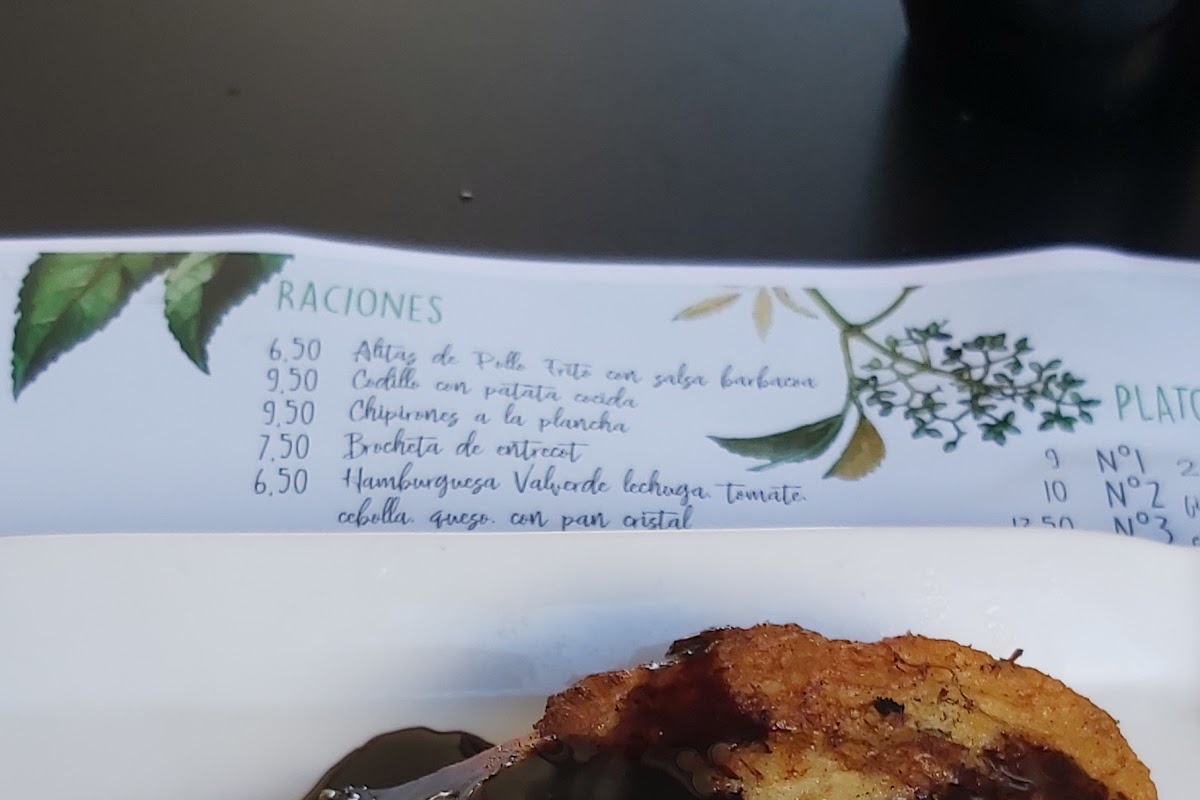 RACIONES
6,50 Alitas de Pollo Frito con salsa barbacoa
9,50 Codillo con patata cocida
9,50 Chipirones a la plancha
7,50 Brocheta de entrecot
6,50 Hamburguesa Valverde lechuga, tomate,
cebolla, queso, con pan cristal
PLATO
9 Nº1 2
10 Nº2
12,50 Nº3